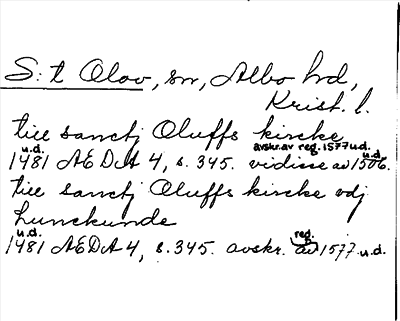 S:t Olov, sn, Albo hd,
Krist. l.
till sanctj Oluffs kircke
u.d. avskr. av reg. 1577 u.d. u.d.
1481 ÆDA 4, s. 345. vidisse av 1506.
till sanctj Oluffs kircke vdj
hunckunde
u.d. reg.
1481 ÆDA 4, s. 345. avskr. av 1577 u.d.